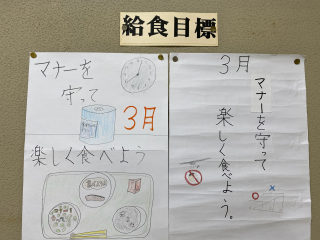 給食目標
マナーを
守って
3月
楽しく食べよう
3月
マナーを守って
楽しく食べよう。